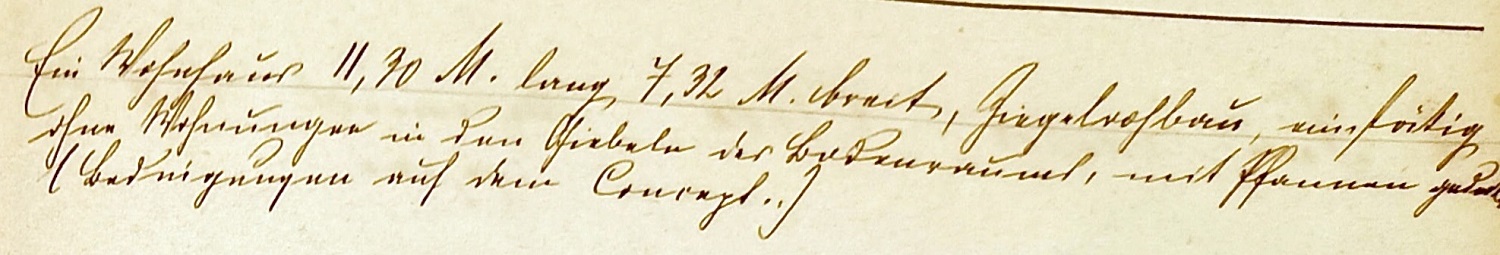 Ein Wohnhaus 11,30 M. lang 7,32 M. breit, Ziegelrohbau, einsötig
ohne Wohnungen in den Giebeln des Bodenraums, mit Pfannen gedeckt
(Bedinigungen auf dem Concept..)